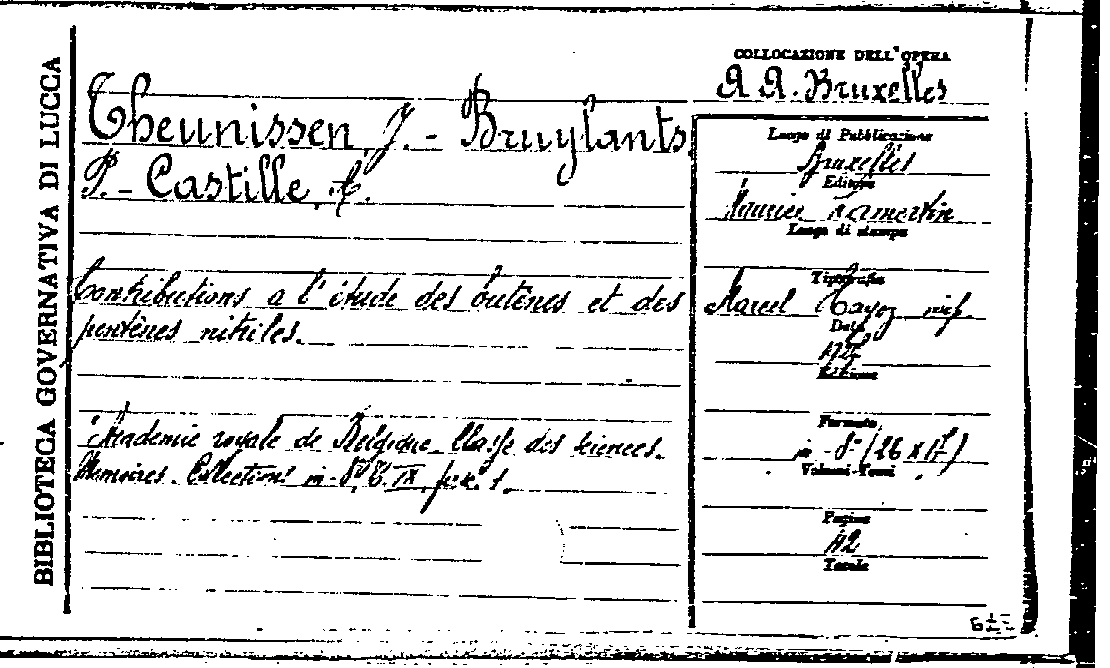 BIBLIOTECA GOVERNATIVA DI LUCCA
COLLOCAZIONE DELL'OPERA
A A. Bruxelles
Theunissen, J. - Bruylants
P. - Castille, A.
Contributions a l'étude des butènes et des
pentènes nitriles.
Académie royale de Belgique. Classe des sciences.
Memoires. Collections in-8° T. IX, fasc. 1.
Luogo di Pubblicazione
Bruxelles
Editore
Maurice Lamertin
Luogo di stampa
Tipografia
Marcel Hayez
Data
Edizione
Formato
in-8° (26 x 17)
Volumi-Tomi
Pagine
42
Totale